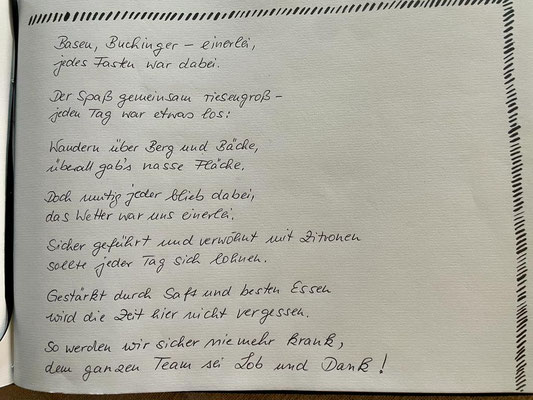 Basen, Buchinger – einerlei,
jedes Fasten war dabei.
Der Spaß gemeinsam riesengroß –
jeden Tag war etwas los:
Wandern über Berg und Bäche,
überall gab's nasse Fläche.
Doch mutig jeder blieb dabei,
das Wetter war uns einerlei.
Sicher geführt und verwöhnt mit Zitronen
sollte jeder Tag sich lohnen.
Gestärkt durch Saft und besten Essen
wird die Zeit hier nicht vergessen.
So werden wir sicher nie mehr krank,
dem ganzen Team sei Lob und Dank!